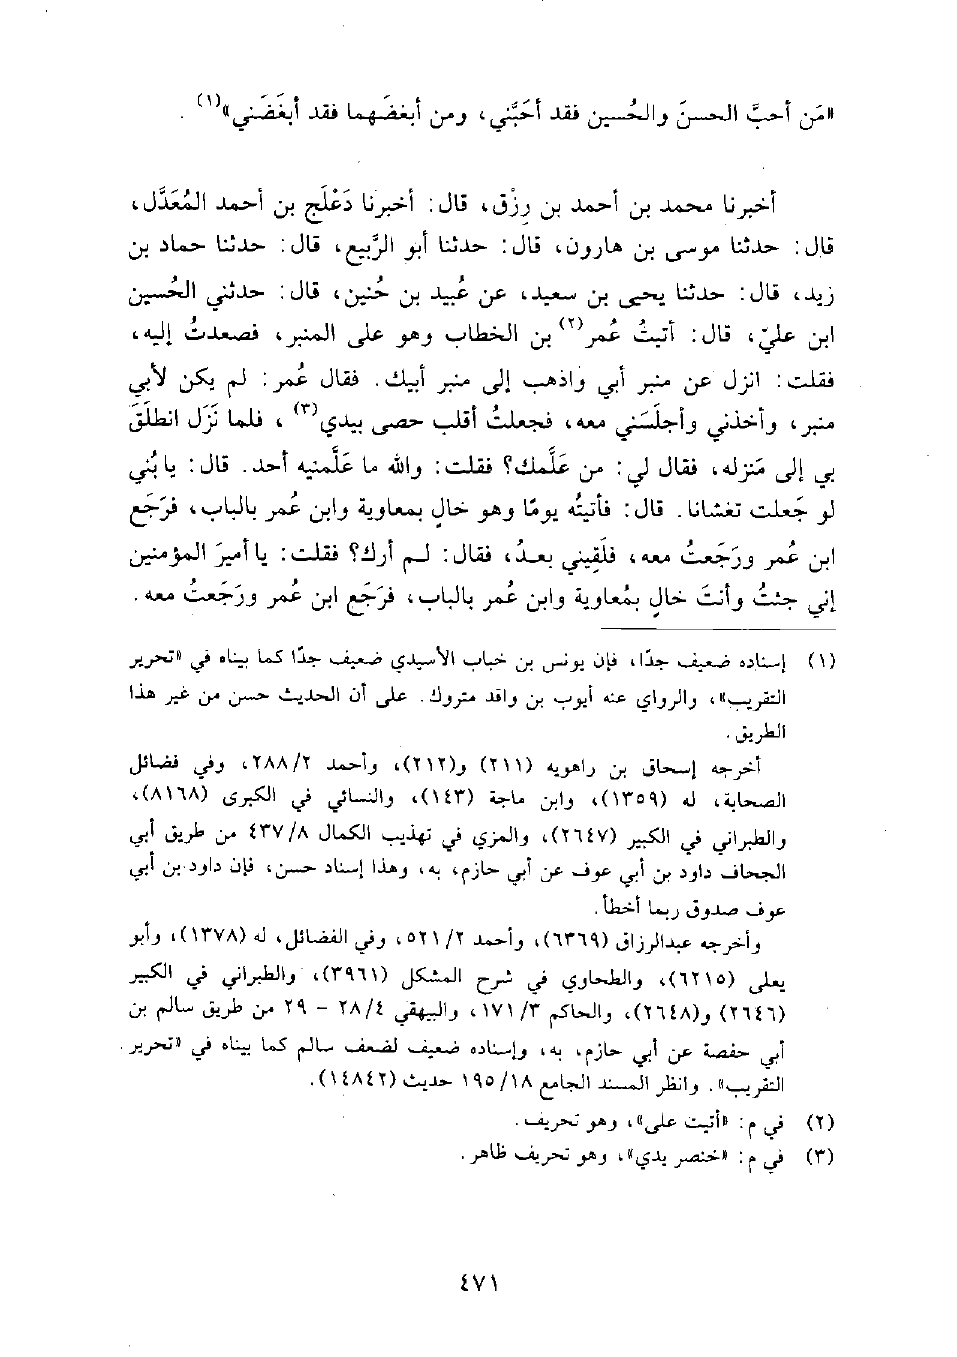 «مَن أحبَّ الحسنَ والحُسين فقد أحَبَّني، ومن أبغضَهما فقد أبغَضَني»(١) .
أخبرنا محمد بن أحمد بن رِزْق، قال: أخبرنا دَعْلَج بن أحمد المُعَدَّل،
قال: حدثنا موسى بن هارون، قال: حدثنا أبو الرَّبيع، قال: حدثنا حماد بن
زيد، قال: حدثنا يحيى بن سعيد، عن عُبيد بن حُنين، قال: حدثني الحُسين
ابن عليّ، قال: أتيتُ عُمر(٢) بن الخطاب وهو على المنبر، فصعدتُ إليه،
فقلت: انزل عن منبر أبي واذهب إلى منبر أبيك. فقال عُمر: لم يكن لأبي
منبر، وأخذني وأجلَسَني معه، فجعلتُ أقلب حصى بيدي(٣)، فلما نَزَل انطلَقَ
بي إلى مَنزله، فقال لي: من عَلَّمك؟ فقلت: والله ما عَلَّمنيه أحد. قال: يا بُني
لو جَعلت تغشانا. قال: فأتيتُه يومًا وهو خالٍ بمعاوية وابن عُمر بالباب، فرَجَع
ابن عُمر ورَجَعتُ معه، فلَقِيني بعدُ، فقال: لم أرك؟ فقلت: يا أميرَ المؤمنين
إني جئتُ وأنتَ خالٍ بمُعاوية وابن عُمر بالباب، فرَجَع ابن عُمر ورَجَعتُ معه.
(١) إسناده ضعيف جدًا، فإن يونس بن خباب الأسيدي ضعيف جدًا كما بيناه في «تحرير
التقريب»، والرواي عنه أيوب بن واقد متروك. على أن الحديث حسن من غير هذا
الطريق.
أخرجه إسحاق بن راهويه (٢١١) و(٢١٢)، وأحمد ٢/ ٢٨٨، وفي فضائل
الصحابة، له (١٣٥٩)، وابن ماجة (١٤٣)، والنسائي في الكبرى (٨١٦٨)،
والطبراني في الكبير (٢٦٤٧)، والمزي في تهذيب الكمال ٨/ ٤٣٧ من طريق أبي
الجحاف داود بن أبي عوف عن أبي حازم، به، وهذا إسناد حسن، فإن داود بن أبي
عوف صدوق ربما أخطأ.
وأخرجه عبدالرزاق (٦٣٦٩)، وأحمد ٢/ ٥٢١، وفي الفضائل، له (١٣٧٨)، وأبو
يعلى (٦٢١٥)، والطحاوي في شرح المشكل (٣٩٦١)، والطبراني في الكبير
(٢٦٤٦) و(٢٦٤٨)، والحاكم ٣/ ١٧١، والبيهقي ٤/ ٢٨ - ٢٩ من طريق سالم بن
أبي حفصة عن أبي حازم، به، وإسناده ضعيف لضعف سالم كما بيناه في «تحرير
التقريب». وانظر المسند الجامع ١٨/ ١٩٥ حديث (١٤٨٤٢).
(٢) في م: «أتيت على»، وهو تحريف.
(٣) في م: «خنصر يدي»، وهو تحريف ظاهر.
٤٧١